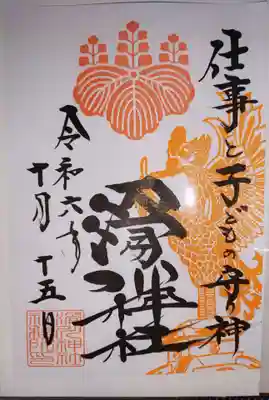 仕事と子どもの守り神
滑川神社
令和六年
十月十五日